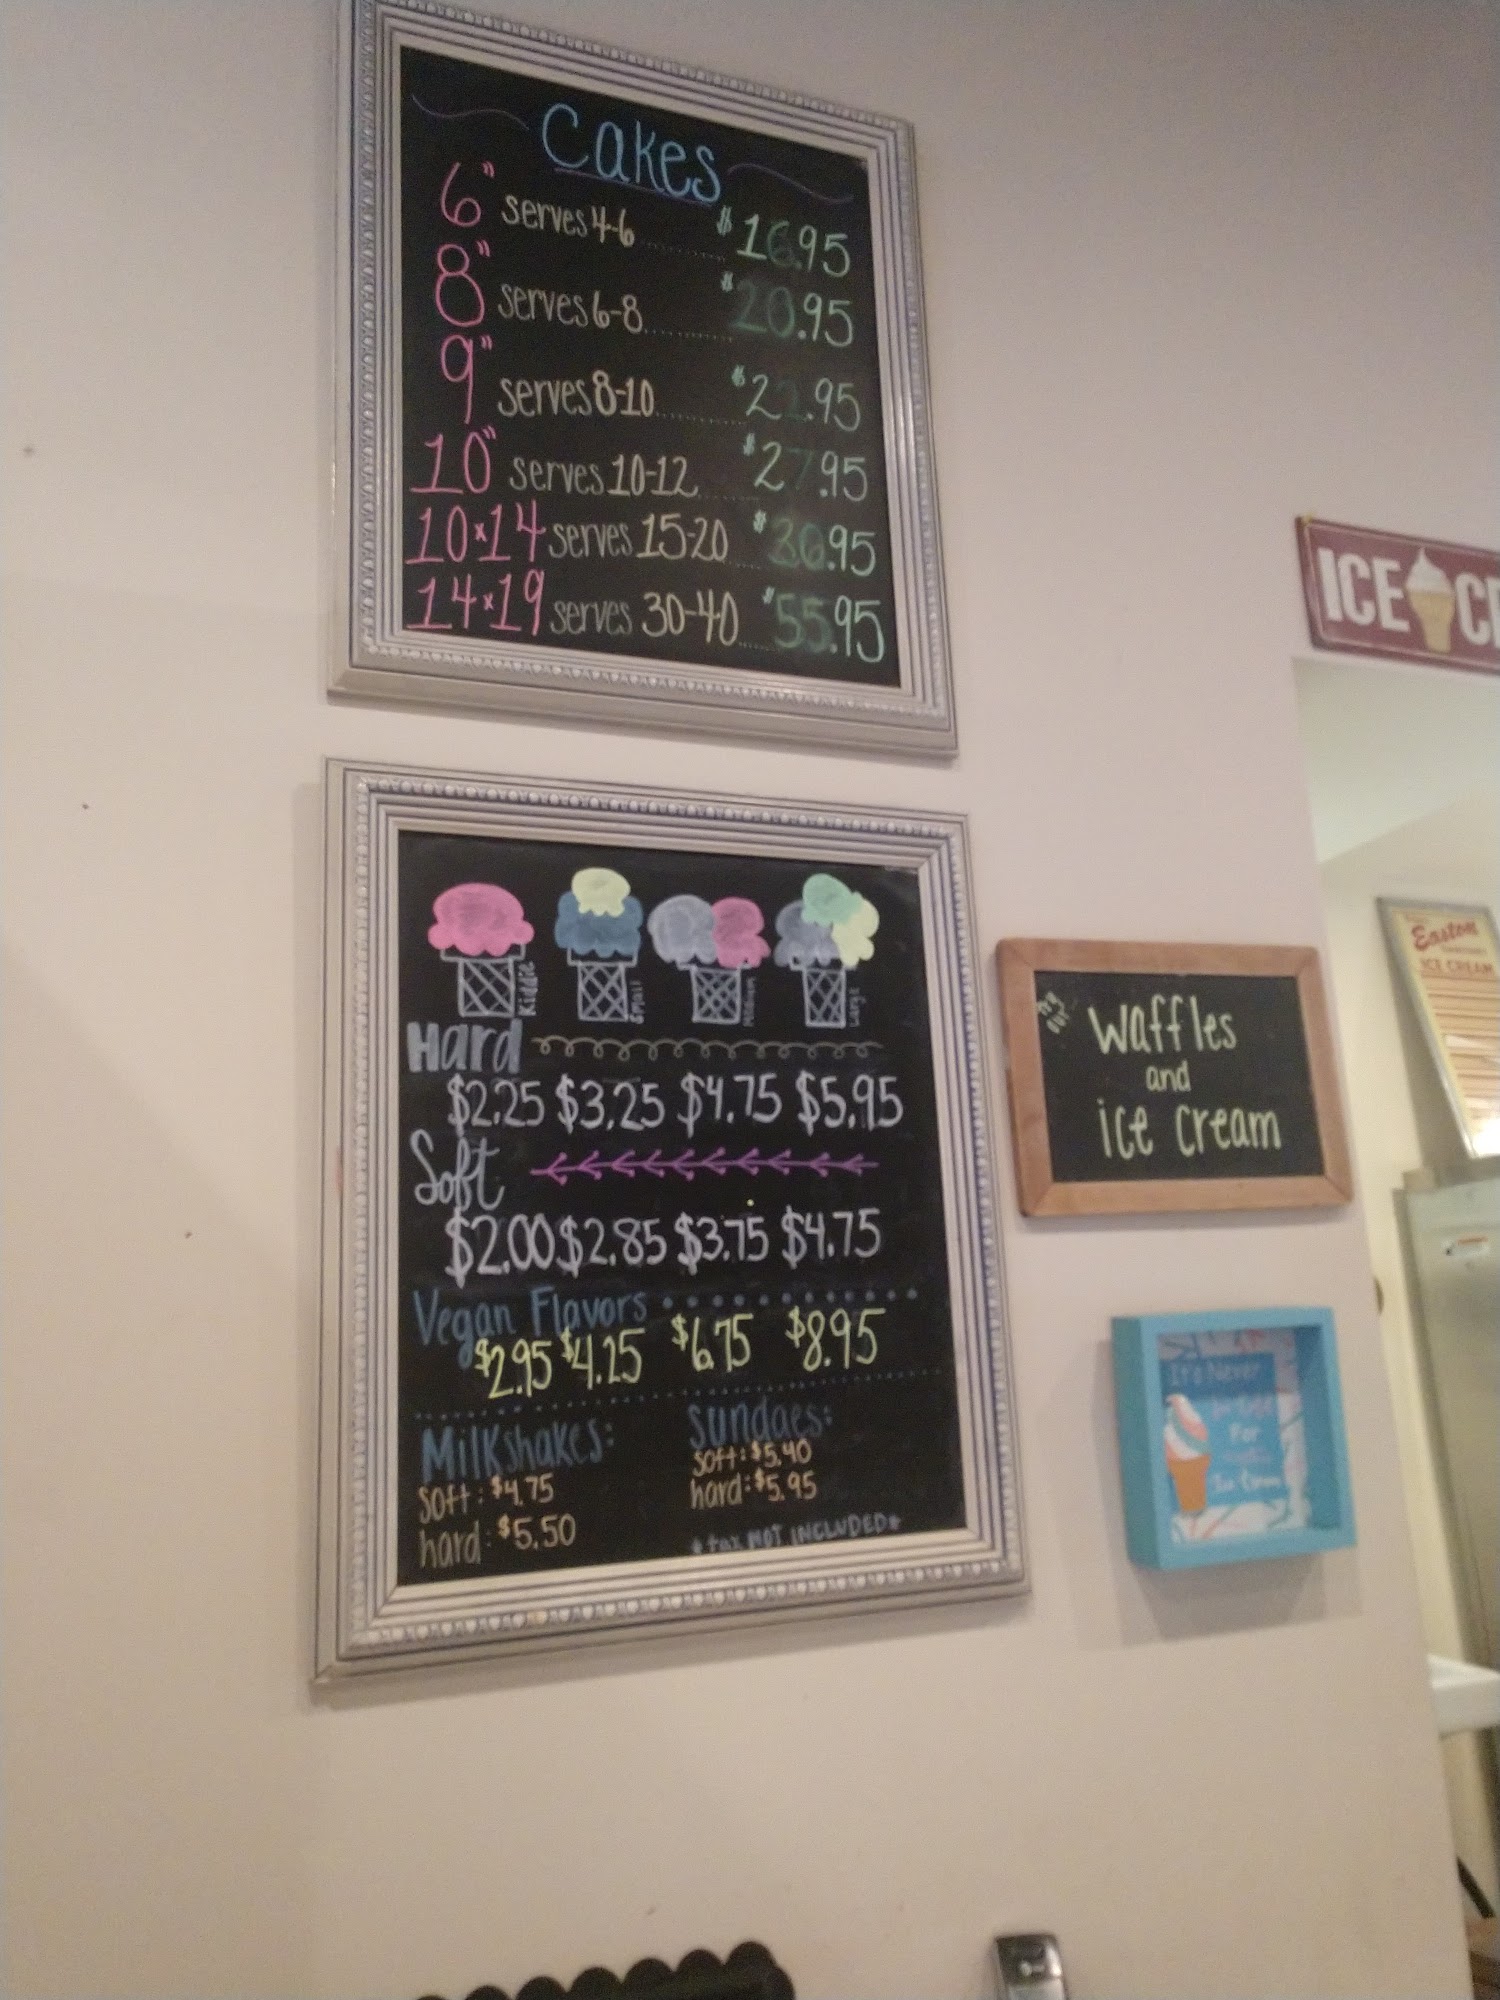 Cakes
6" serves 4-6 ........ $16.95
8" serves 6-8 ........ $20.95
9" serves 8-10 ........ $21.95
10" serves 10-12 ...... $27.95
10x14 serves 15-20 .... $ .95
14x19 serves 30-40 .... $55.95
Kiddie Small Medium Large
Hard
$2.25 $3.25 $4.75 $5.95
Soft
$2.00 $2.85 $3.75 $4.75
Vegan Flavors
$2.95 $4.25 $6.75 $8.95
Milkshakes:
soft: $4.75
hard: $5.50
Sundaes:
soft: $5.40
hard: $5.95
*tax NOT INCLUDED*
Try our...
Waffles
and
ice cream
It's Never
For
Ice Cream
ICE CR
Easton
ICE CREAM